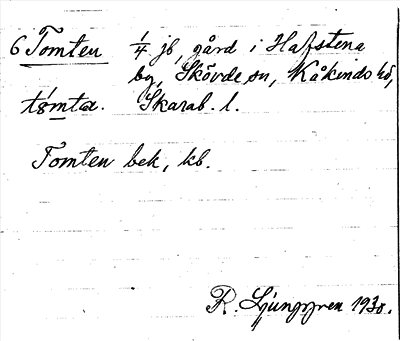 6 Tomten 1/4 jb, gård i Hafstena
by, Skövde sn, Kåkinds hd,
Skarab. l.
Tomten bek, kb.
R. Ljunggren 1930.